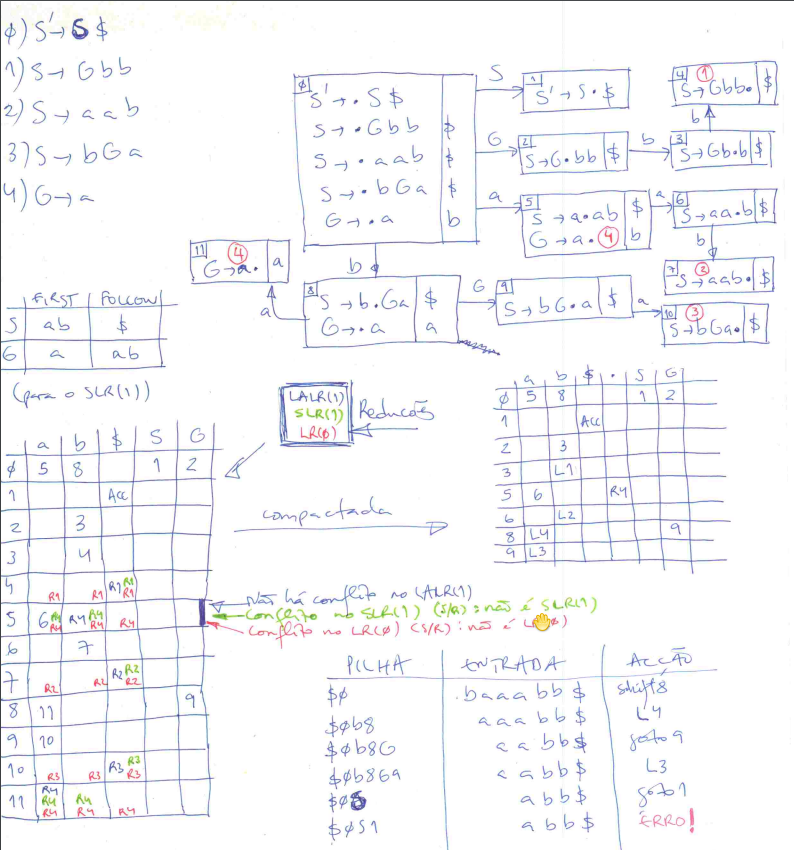 0) S' → S $
1) S → Gbb
2) S → aab
3) S → bGa
4) G → a
0
S' → ·S$
S → ·Gbb $
S → ·aab $
S → ·bGa $
G → ·a b
S
1
S' → S·$
G
2
S → G·bb $
b
3
S → Gb·b $
b
4 1
S → Gbb· $
a
5
S → a·ab $
G → a· 4 b
a
6
S → aa·b $
b
7 2
S → aab· $
b
8
S → b·Ga $
G → ·a a
G
9
S → bG·a $
a
10 3
S → bGa· $
a
11 4
G → a· a
FIRST FOLLOW
S ab $
G a ab
(para o SLR(1))
LALR(1)
SLR(1)
LR(0)
Reduções
a b $ S G
0 5 8 1 2
1 ACC
2 3
3 4
4 R1 R1 R1 R1 R1
5 6 R4 R4 R4 R4 R4 R4
6 7
7 R2 R2 R2 R2 R2
8 11 9
9 10
10 R3 R3 R3 R3 R3
11 R4 R4 R4 R4 R4 R4
compactada
a b $ · S G
0 5 8 1 2
1 ACC
2 3
3 L1
5 6 R4
6 L2
8 L4 9
9 L3
Não há conflito no LALR(1)
Conflito no SLR(1) (S/R): não é SLR(1)
Conflito no LR(0) (S/R): não é
PILHA ENTRADA ACÇÃO
$0 baaabb$ shift 8
$0b8 aaabb$ L4
$0b8G aabb$ goto 9
$0b8G9 aabb$ L3
$0S abb$ goto 1
$0S1 abb$ ERRO!